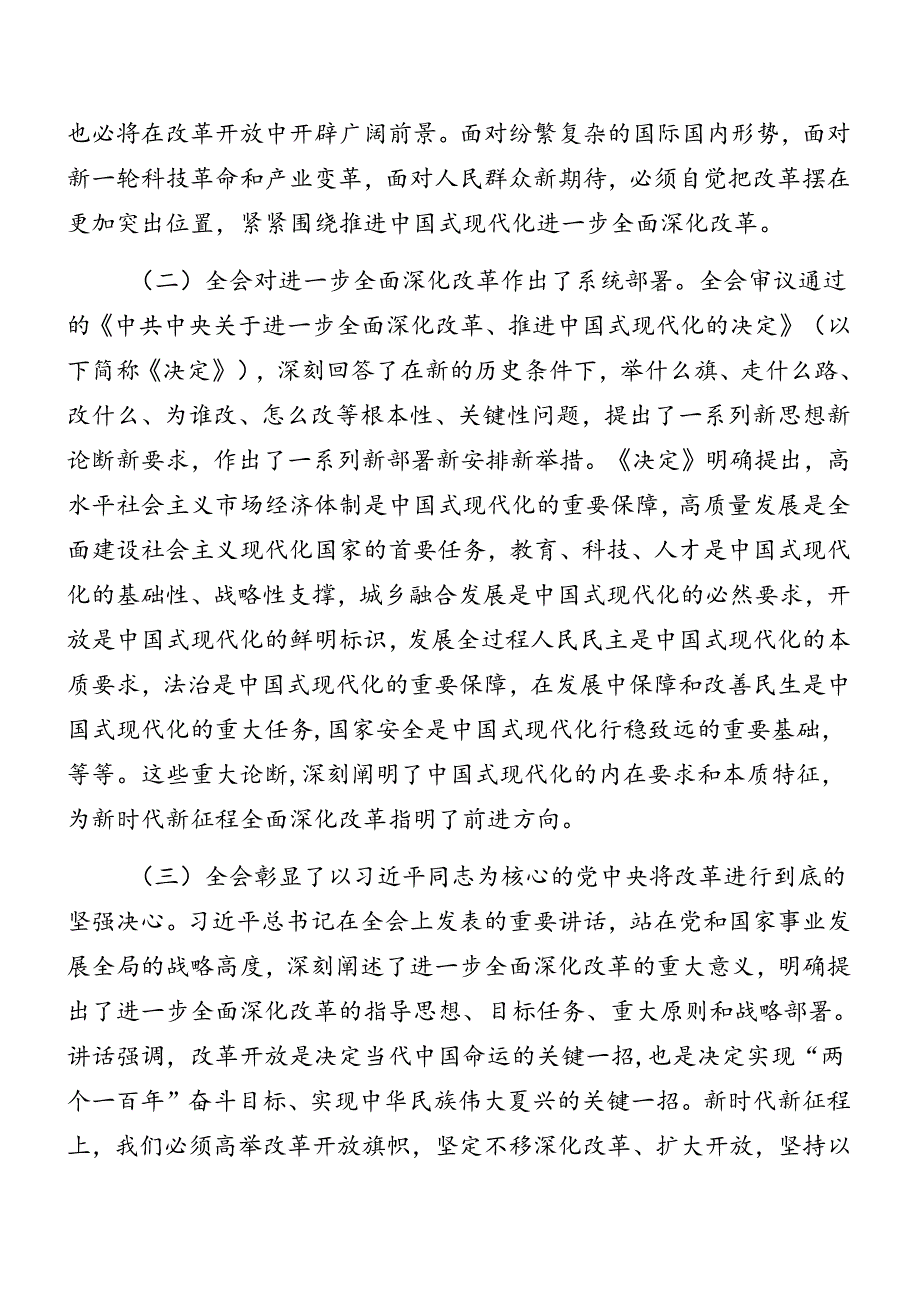 也必将在改革开放中开辟广阔前景。面对纷繁复杂的国际国内形势，面对
新一轮科技革命和产业变革，面对人民群众新期待，必须自觉把改革摆在
更加突出位置，紧紧围绕推进中国式现代化进一步全面深化改革。
（二）全会对进一步全面深化改革作出了系统部署。全会审议通过
的《中共中央关于进一步全面深化改革、推进中国式现代化的决定》（以
下简称《决定》），深刻回答了在新的历史条件下，举什么旗、走什么路、
改什么、为谁改、怎么改等根本性、关键性问题，提出了一系列新思想新
论断新要求，作出了一系列新部署新安排新举措。《决定》明确提出，高
水平社会主义市场经济体制是中国式现代化的重要保障，高质量发展是全
面建设社会主义现代化国家的首要任务，教育、科技、人才是中国式现代
化的基础性、战略性支撑，城乡融合发展是中国式现代化的必然要求，开
放是中国式现代化的鲜明标识，发展全过程人民民主是中国式现代化的本
质要求，法治是中国式现代化的重要保障，在发展中保障和改善民生是中
国式现代化的重大任务，国家安全是中国式现代化行稳致远的重要基础，
等等。这些重大论断，深刻阐明了中国式现代化的内在要求和本质特征，
为新时代新征程全面深化改革指明了前进方向。
（三）全会彰显了以习近平同志为核心的党中央将改革进行到底的
坚强决心。习近平总书记在全会上发表的重要讲话，站在党和国家事业发
展全局的战略高度，深刻阐述了进一步全面深化改革的重大意义，明确提
出了进一步全面深化改革的指导思想、目标任务、重大原则和战略部署。
讲话强调，改革开放是决定当代中国命运的关键一招，也是决定实现“两
个一百年”奋斗目标、实现中华民族伟大夏兴的关键一招。新时代新征程
上，我们必须高举改革开放旗帜，坚定不移深化改革、扩大开放，坚持以